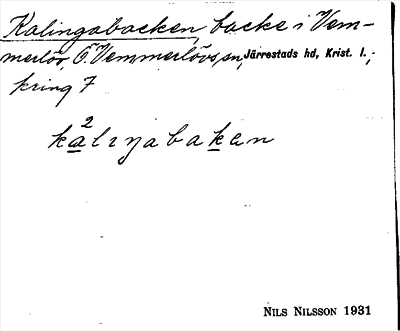 Kalingabacken, backe i Vem-
merlöv, Ö. Vemmerlövs sn, Järrestads hd, Krist. l.;
kring 7
2
kalıŋabakan
NILS NILSSON 1931